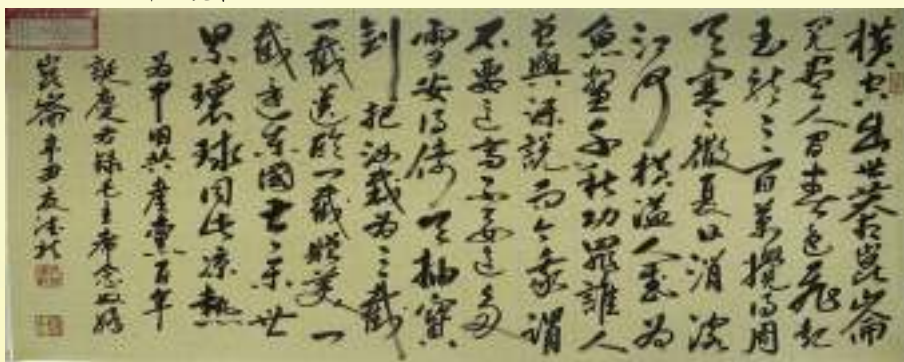 横空出世莽崑崙
阅尽人间春色飞起
玉龙三百万搅得周
天寒彻夏日消溶
江河横溢人或为
鱼鳖千秋功罪谁人
曾與评说而今我谓
不要这高不要这多
雪安得倚天抽宝
剑把汝裁为三截
一截遗欧一截赠美一
截还东國太平世
界环球同此凉热
为中国共产党百年
诞庆书录毛主席念奴娇
崑崙辛丑友德